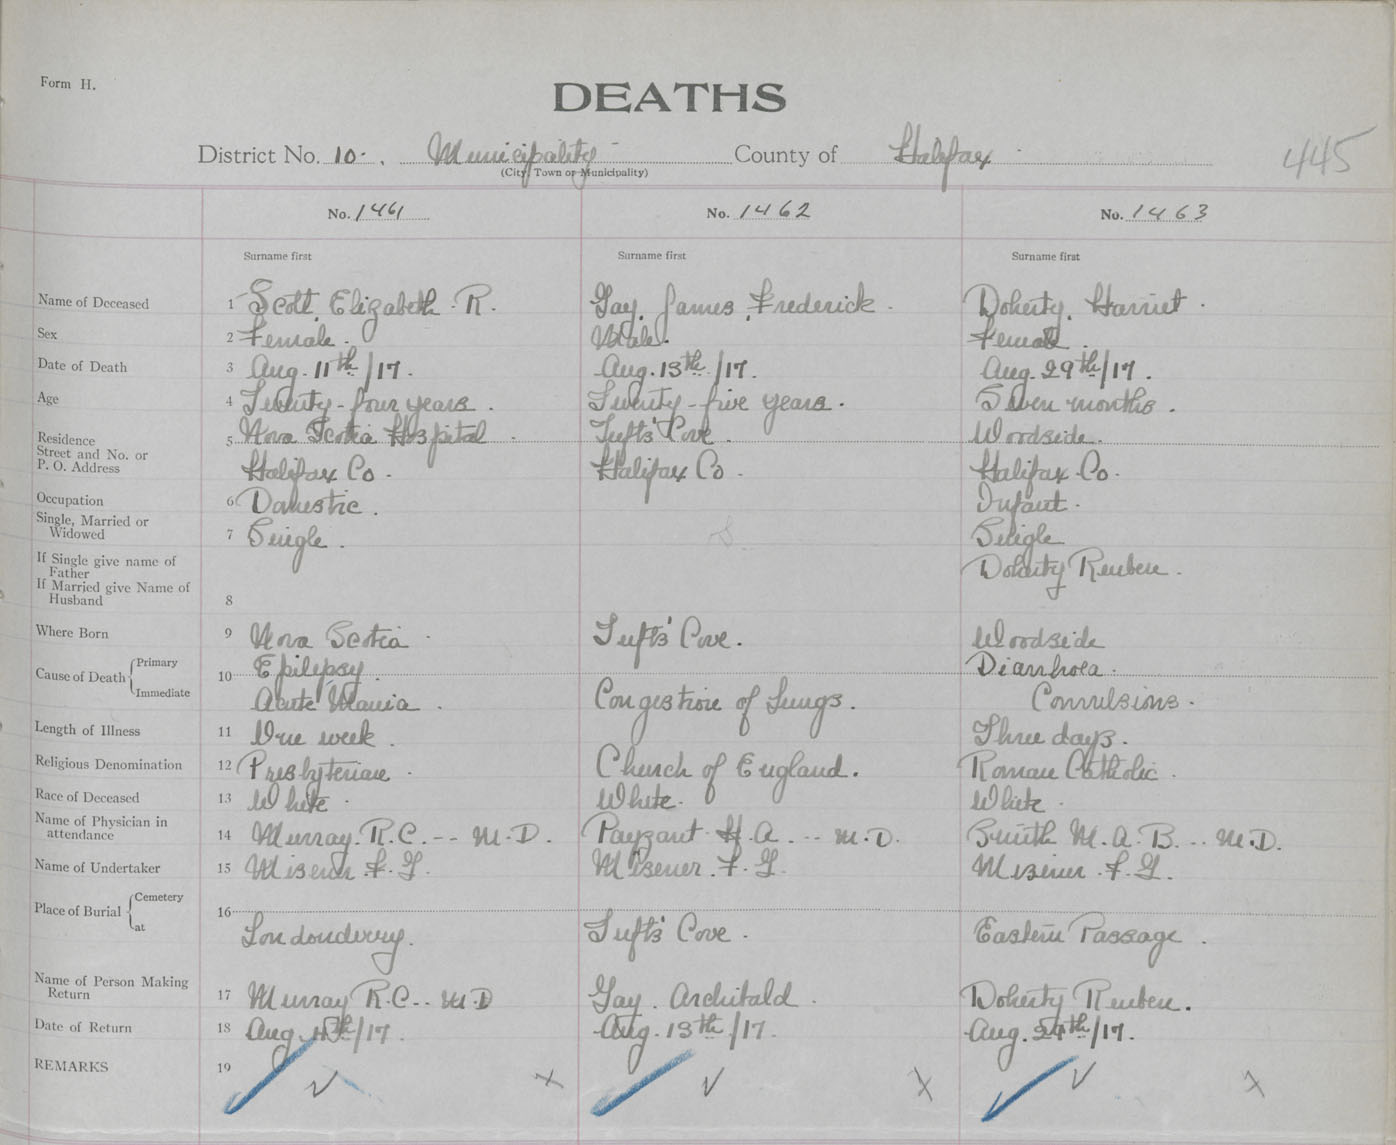 Form H.
DEATHS
District No. 10. Municipality County of Halifax 445
(City, Town or Municipality)
No. 1461 No. 1462 No. 1463
Surname first Surname first Surname first
Name of Deceased 1 Scott, Elizabeth R. Gay, James, Frederick. Doherty, Harriet.
Sex 2 Female. Male. Female.
Date of Death 3 Aug. 11th/17. Aug. 13th/17. Aug. 29th/17.
Age 4 Twenty-four years. Twenty-five years. Seven months.
Residence Street and No. or P. O. Address 5 Nova Scotia Hospital. Tufts' Cove. Woodside.
Halifax Co. Halifax Co. Halifax Co.
Occupation 6 Domestic. Infant.
Single, Married or Widowed 7 Single. S Single
If Single give name of Father Doherty Reuben.
If Married give Name of Husband 8
Where Born 9 Nova Scotia. Tufts' Cove. Woodside
Cause of Death Primary 10 Epilepsy. Diarrhoea.
Immediate Acute Mania. Congestion of Lungs. Convulsions.
Length of Illness 11 One week. Three days.
Religious Denomination 12 Presbyterian. Church of England. Roman Catholic.
Race of Deceased 13 White. White. White.
Name of Physician in attendance 14 Murray. R.C. -- M.D. Payzant H.A. -- M.D. Smith M.A.B. -- M.D.
Name of Undertaker 15 Misener. F.G. Misener. F.G. Misener. F.G.
Place of Burial Cemetery 16
at Londonderry. Tufts' Cove. Eastern Passage.
Name of Person Making Return 17 Murray R.C. -- M.D Gay. Archibald. Doherty Reuben.
Date of Return 18 Aug. /17. Aug. 13th/17. Aug. 29th/17.
REMARKS 19